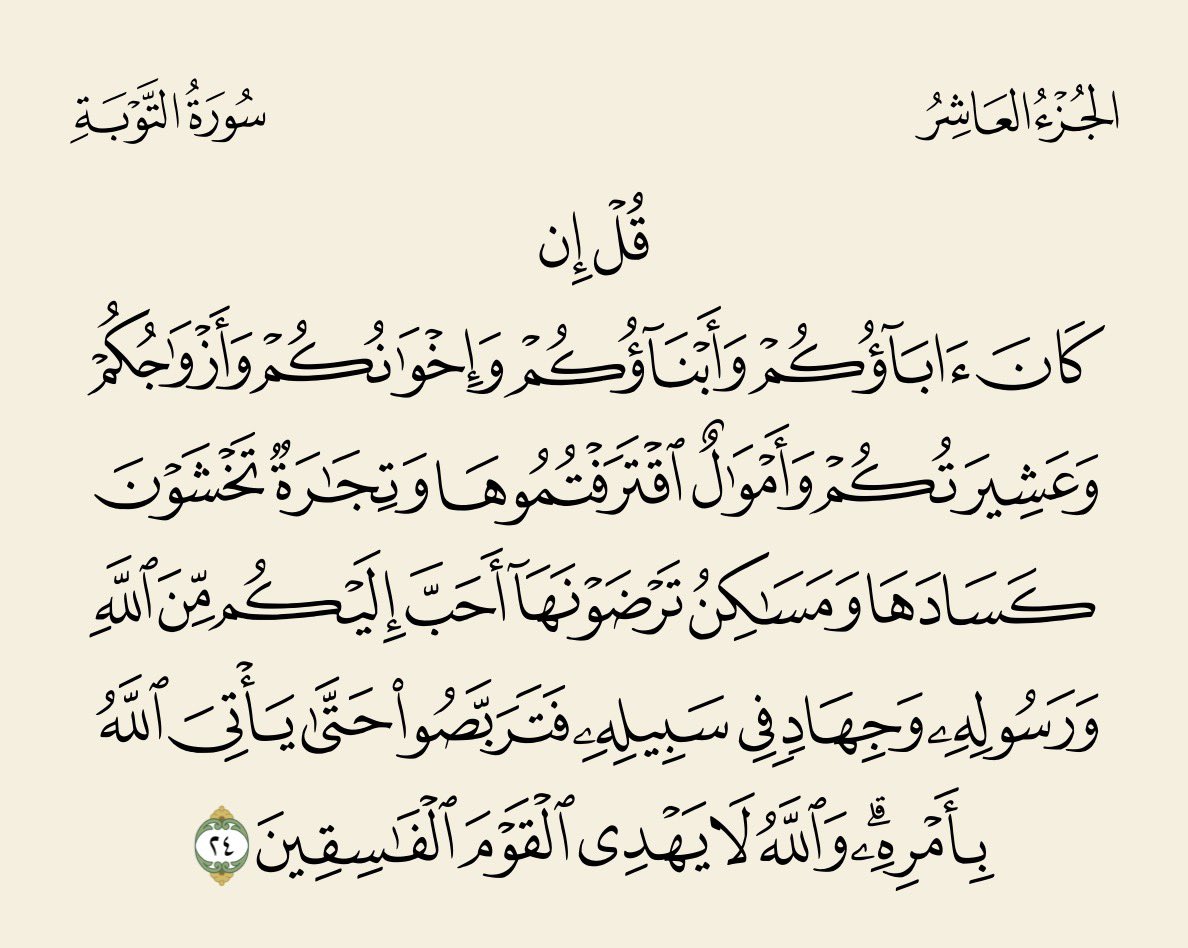 الجُزْءُ العَاشِرُ
سُورَةُ التَّوْبَةِ
قُلْ إِن
كَانَ ءَابَآؤُكُمْ وَأَبْنَآؤُكُمْ وَإِخْوَٰنُكُمْ وَأَزْوَٰجُكُمْ
وَعَشِيرَتُكُمْ وَأَمْوَٰلٌ ٱقْتَرَفْتُمُوهَا وَتِجَٰرَةٌ تَخْشَوْنَ
كَسَادَهَا وَمَسَٰكِنُ تَرْضَوْنَهَآ أَحَبَّ إِلَيْكُم مِّنَ ٱللَّهِ
وَرَسُولِهِۦ وَجِهَادٍ فِى سَبِيلِهِۦ فَتَرَبَّصُوا۟ حَتَّىٰ يَأْتِىَ ٱللَّهُ
بِأَمْرِهِۦ ۗ وَٱللَّهُ لَا يَهْدِى ٱلْقَوْمَ ٱلْفَٰسِقِينَ ٢٤